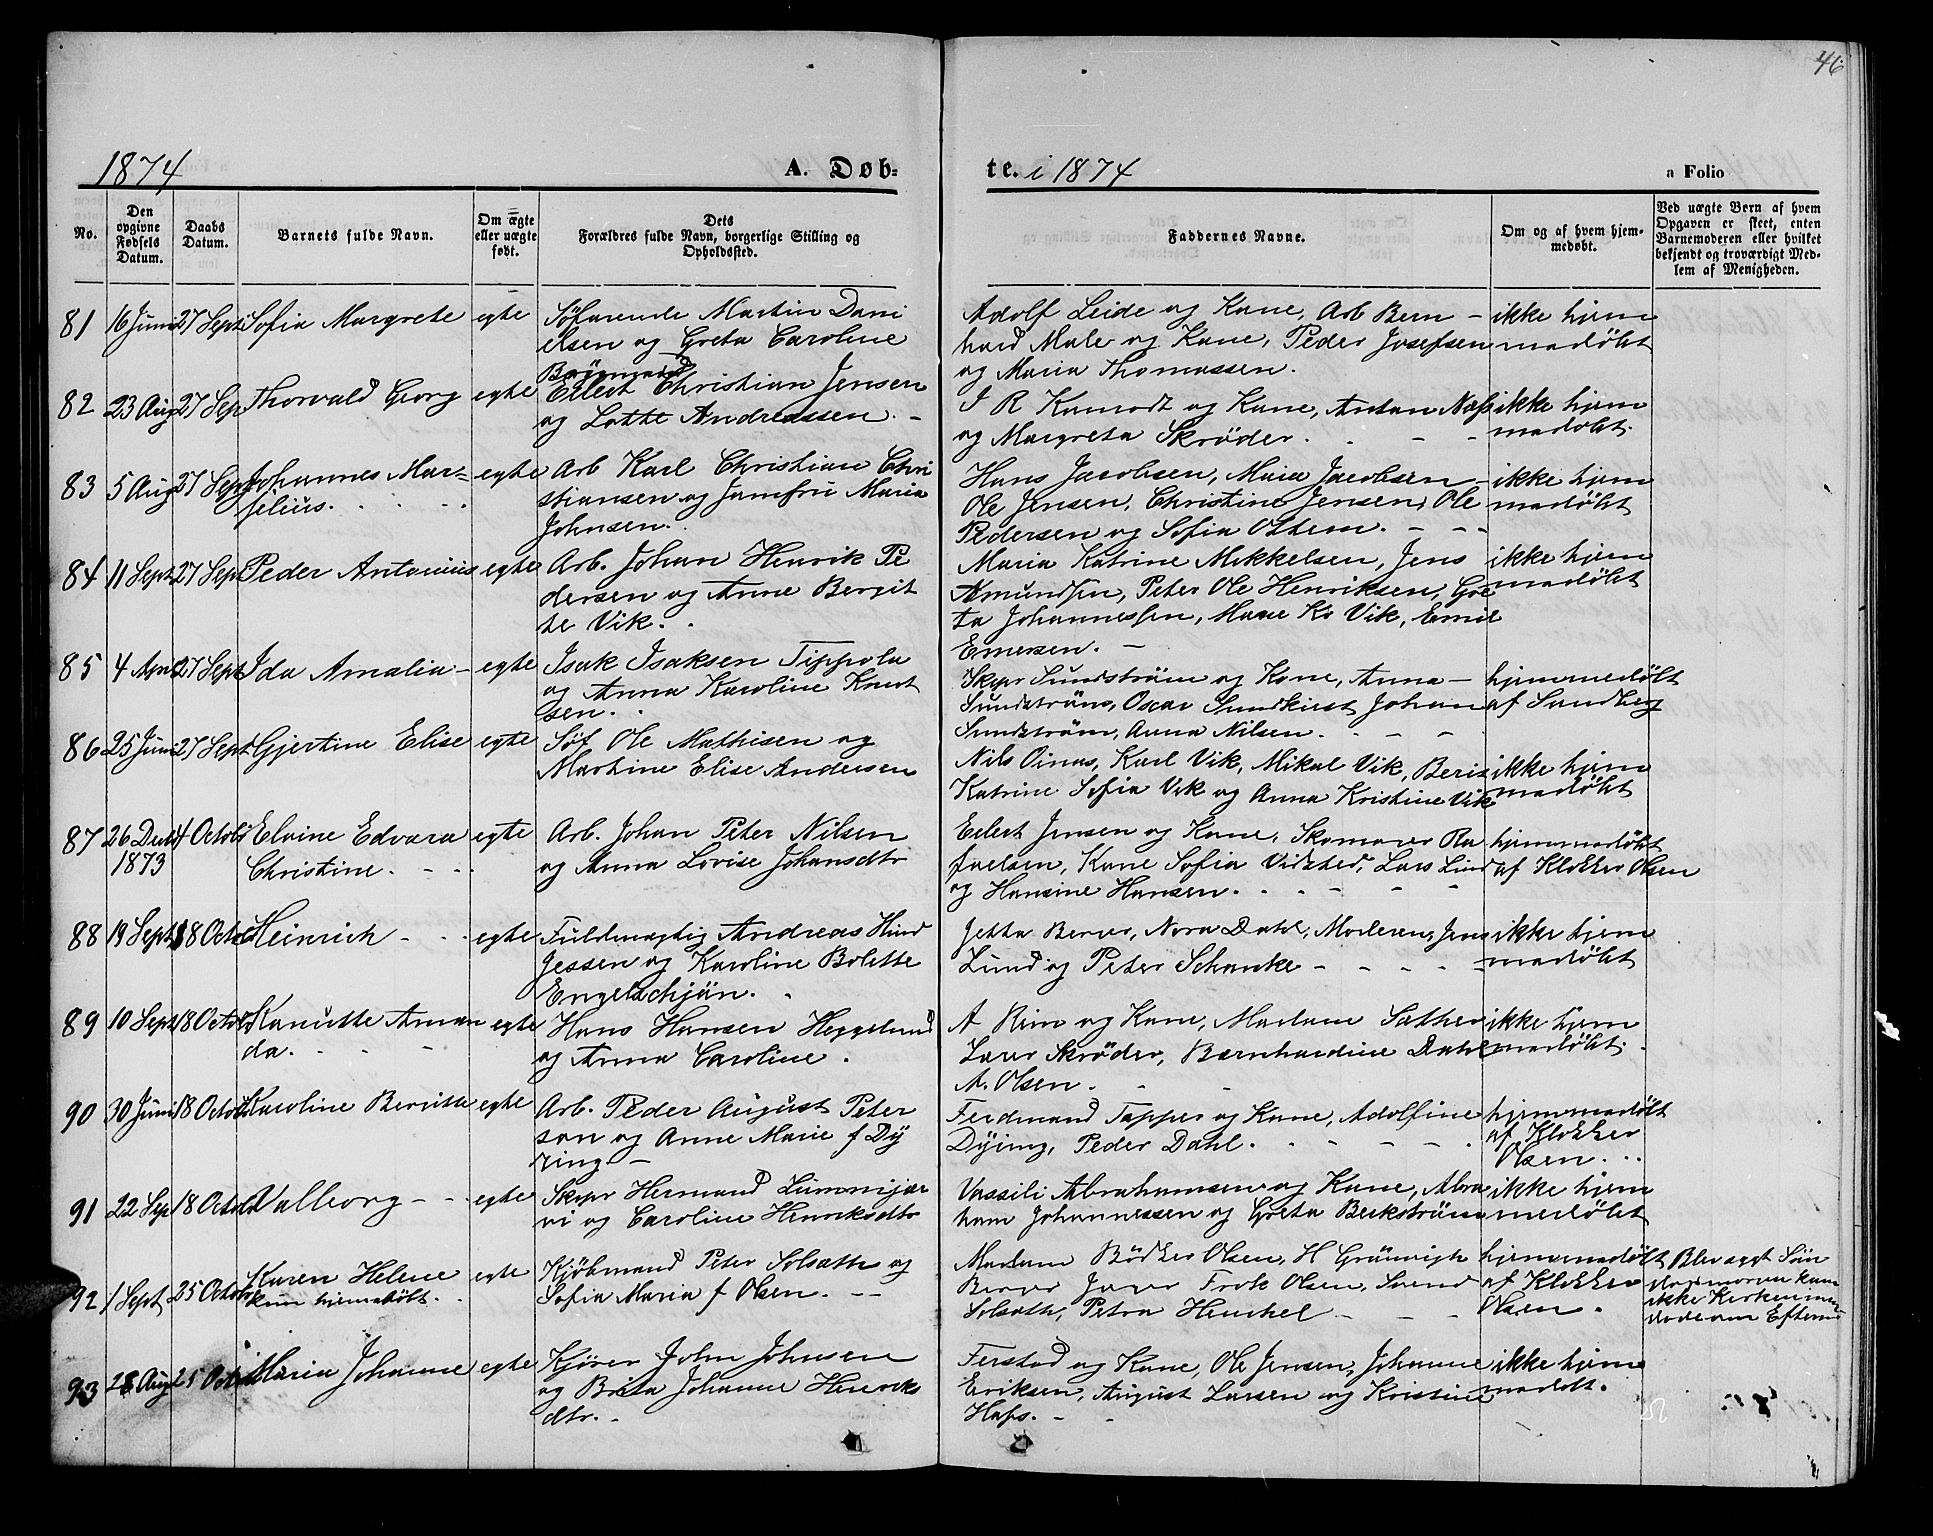 46
1874
A. Døb-
te. i 1874
a Folio
No.
Den opgivne Fødsels Datum.
Daabs Datum.
Barnets fulde Navn.
Om ægte eller uægte født.
Dets Forældres fulde Navn, borgerlige Stilling og Opholdssted.
Faddernes Navne.
Om og af hvem hjemmedøbt.
Ved uægte Børn af hvem Opgaven er skeet, enten Barnemoderen eller hvilket bekjendt og troværdigt Medlem af Menigheden.
81 16 Juni 27 Sept Sofia Margrete egte Søfarende Martin Dani
elsen og Greta Caroline
Adolf Leide og Kone, Arb Bern-
hard Male og Kone, Peder Josefsen
og Maria Thomassen.
ikke hjem
madöbt
82 23 Aug 27 Sep Thorvald Georg egte Eilert Christian Jensen
og Lotte Andreassen.
og Kone, Anton Næss
og Margreta Skröder.
ikke hjem
madöbt.
83 5 Aug 27 Sept Johannes Mar-
selius.
egte Arb Karl Christian Chri
stiansen og Jomfru Maria
Johnsen.
Hans Jacobsen, Maia Jacobsen
Ole Jensen, Christine Jensen, Ole
Pedersen og Sofia Ottem.
ikke hjem
madöbt
84 11 Sept 27 Sept Peder Antonius egte Arb. Johan Henrik Pe
dersen og Anne Bergit
te Vik.
Maria Katrine Mikkelsen, Jens
Amundsen, Peter Ole Henriksen, Gre
ta Johannessen, Vik, Emil
Emersen.
ikke hjem
madöbt
85 4 Apr 27 Sept Ida Amalia egte Isak Isaksen Tippola
og Anna Karoline Knut
sen.
Skpr Sundström og Kone, Anna
Sundströms, Oscar Johan
Sundström, Anna Nilsen.
hjemmedöbt
af Sandberg
86 25 Juni 27 Sept Gjertine Elise egte Søf Ole Mathisen og
Martine Elise Andersen
Nils Oinas, Karl Vik, Mikal Vik, Berit
Katrine Sofia Vik og Anna Kristine Vik
ikke hjem
madöbt
87 26 Decb 4 Octob Elvine Edvara egte Arb. Johan Peter Nilsen
1873 Christine.
og Anna Lovise Johansdtr
Eilert Jensen og Kone, Skomager Ra
faelsen, Kone Sofia Vidsted, Lars Lund
og Hansine Hansen.
hjemmedöbt
af Klokker Olsen
88 19 Sept 18 Octob Heinrich egte Fuldmægtig Andreas Hind
Jessen og Karoline Bolette
Engelschjön.
Jetta Berver, Nora Dahl, Moderen, Jens
Lund og Peter Schanke
ikke hjem
madöbt
89 10 Sept 18 Octob Kanutte Aman
da.
egte Hans Hansen Heggelund
og Anna Caroline.
A Rim og Kone, Madam Sather
Skröder, Bernhardine Dahl
A. Olsen.
ikke hjem
madöbt.
90 30 Juni 18 Octob Karoline Bergitte egte Arb. Peder August Peter
son og Anne Marie f Dy
ring
Ferdinand Tapper og Kone, Adolfine
Dyring, Peder Dahl.
hjemmedöbt
af Klokker
Olsen
91 22 Sep 18 Octob Valborg egte Skpr Hermand Lummijær
vi og Caroline Henriksdtr
Vassili Abrahamsen og Kone, Abra
ham Johannessen og Greta Beckström
ikke hjem
medöbt
92 1 Sept 25 Octob Karen Helene
kun hjemedöbt.
egte Kjöbmand Peter Solsath og
Sofia Maria f Olsen.
Madam Bödker Olsen, H
Frøk Olsen, Svend
Solsath, Petra Henckel
hjemmedöbt
af Klokker
Olsen.
Blev sygt Søn
dagmoren kom
ikke Kirken men
döde om Efterm
93 28 Aug 25 Octob Maria Johanne egte Kjører John Johnsen
og Brita Johanne Henriks
dtr.
Ferstad og Kone, Ole Jensen, Johanne
Eriksen, August Larsen og Kristine
Hass.
ikke hjem
madöbt.